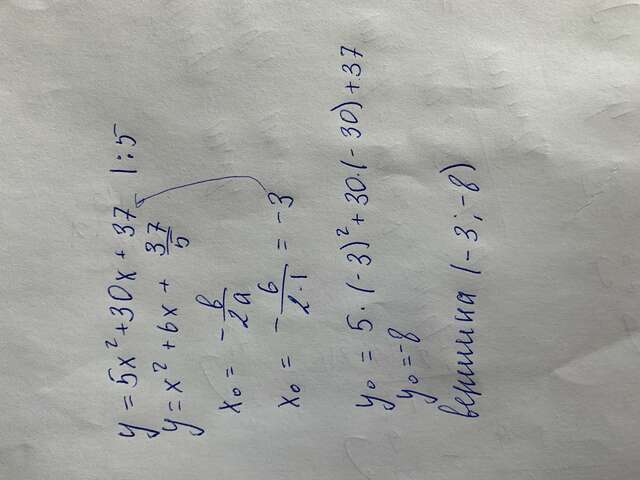 y = 5x² + 30x + 37 | : 5
y = x² + 6x + 37/5
x₀ = - b/2a
x₀ = - 6/2·1 = -3
y₀ = 5·(-3)² + 30·(-30) + 37
y₀ = -8
вершина (-3; -8)